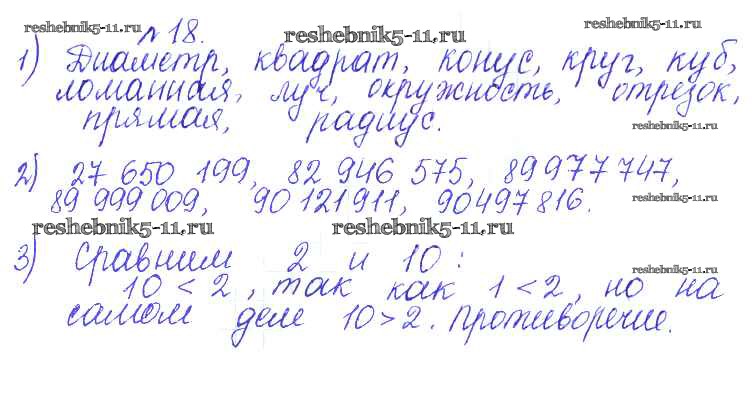 reshebnik5-11.ru
№ 18.
reshebnik5-11.ru
reshebnik5-11.ru
1) Диаметр, квадрат, конус, круг, куб,
ломанная, луч, окружность, отрезок,
прямая, радиус.
reshebnik5-11.ru
2) 27 650 199, 82 946 575, 89 977 747,
89 999 009, 90 121 911, 90 497 816.
reshebnik5-11.ru
reshebnik5-11.ru
reshebnik5-11.ru
3) Сравним 2 и 10 :
reshebnik5-11.ru
10 < 2 , так как 1 < 2 , но на
самом деле 10 > 2. Противоречие.